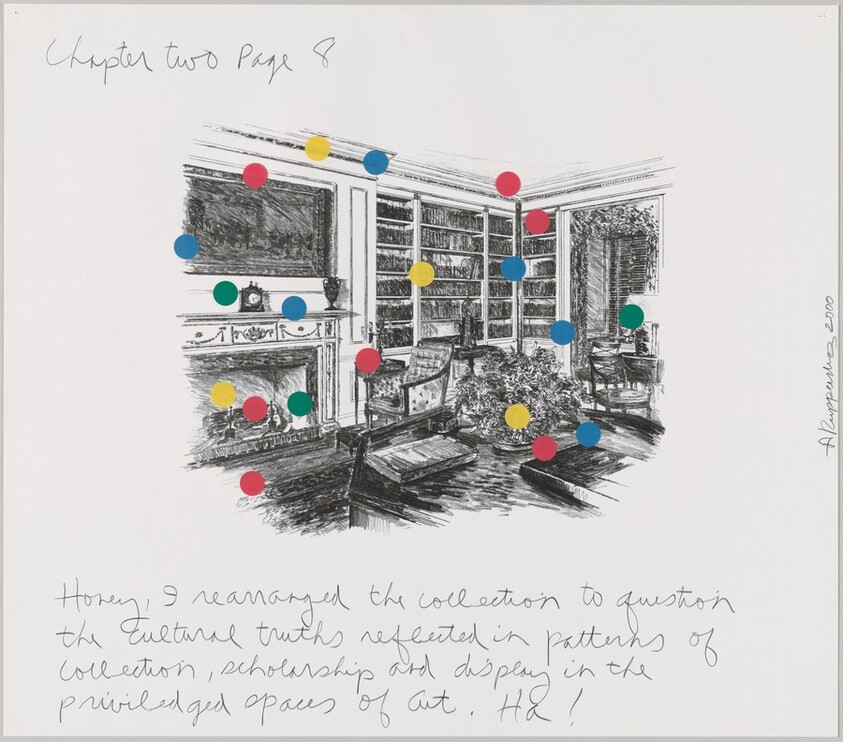 Chapter two Page 8
A Ruppersberg 2000
Honey, I rearranged the collection to question
the cultural truths reflected in patterns of
collection, scholarship and display in the
priviledged spaces of art. Ha!